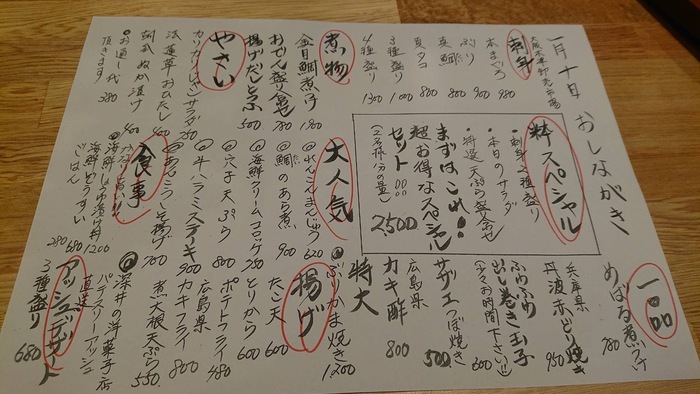 一月十日 おしながき
大阪木津卸売市場
刺身
本まぐろ 980
ぶり 900
真鯛 800
真タコ 800
3種盛り 1000
4種盛り 1300
煮物
金目鯛煮つけ 1200
おでん盛り合せ 780
揚げだしとふ 500
やさい
カリカリじゃこサラダ 750
法蓮草おひたし 400
胡瓜ぬか漬け 400
お通し代
頂きます 280
粋スペシャル
・刺身2種盛り
・本日のサラダ
・特選天ぷら盛合せ
まずはこれ!
超お得なスペシャル
セット
(2名様分の量)
2500
大人気
れんこんまんじゅう 620
鯛のあら煮 900
海鮮クリームコロッケ 750
穴子天ぷら 800
牛ハラミステーキ 900
あんこうしそ揚げ 750
食事
海鮮しょうゆ漬け丼 1200
海鮮ぞうすい 680
ごはん 280
一品
めばる煮つけ 780
兵庫県
丹波赤どり焼き 950
ふゆふゆ
出し巻き玉子 600
(少々お時間下さい!!)
サザエつぼ焼き 500
広島県
カキ酢 800
特大
ぶりかま焼き 1200
揚げ
たこ天 600
とりから 600
ポテトフライ 480
広島県
カキフライ 800
煮大根天ぷら 550
深井の洋菓子店
パティスリーアッシュ
直送
アッシュデザート
3種盛り 680